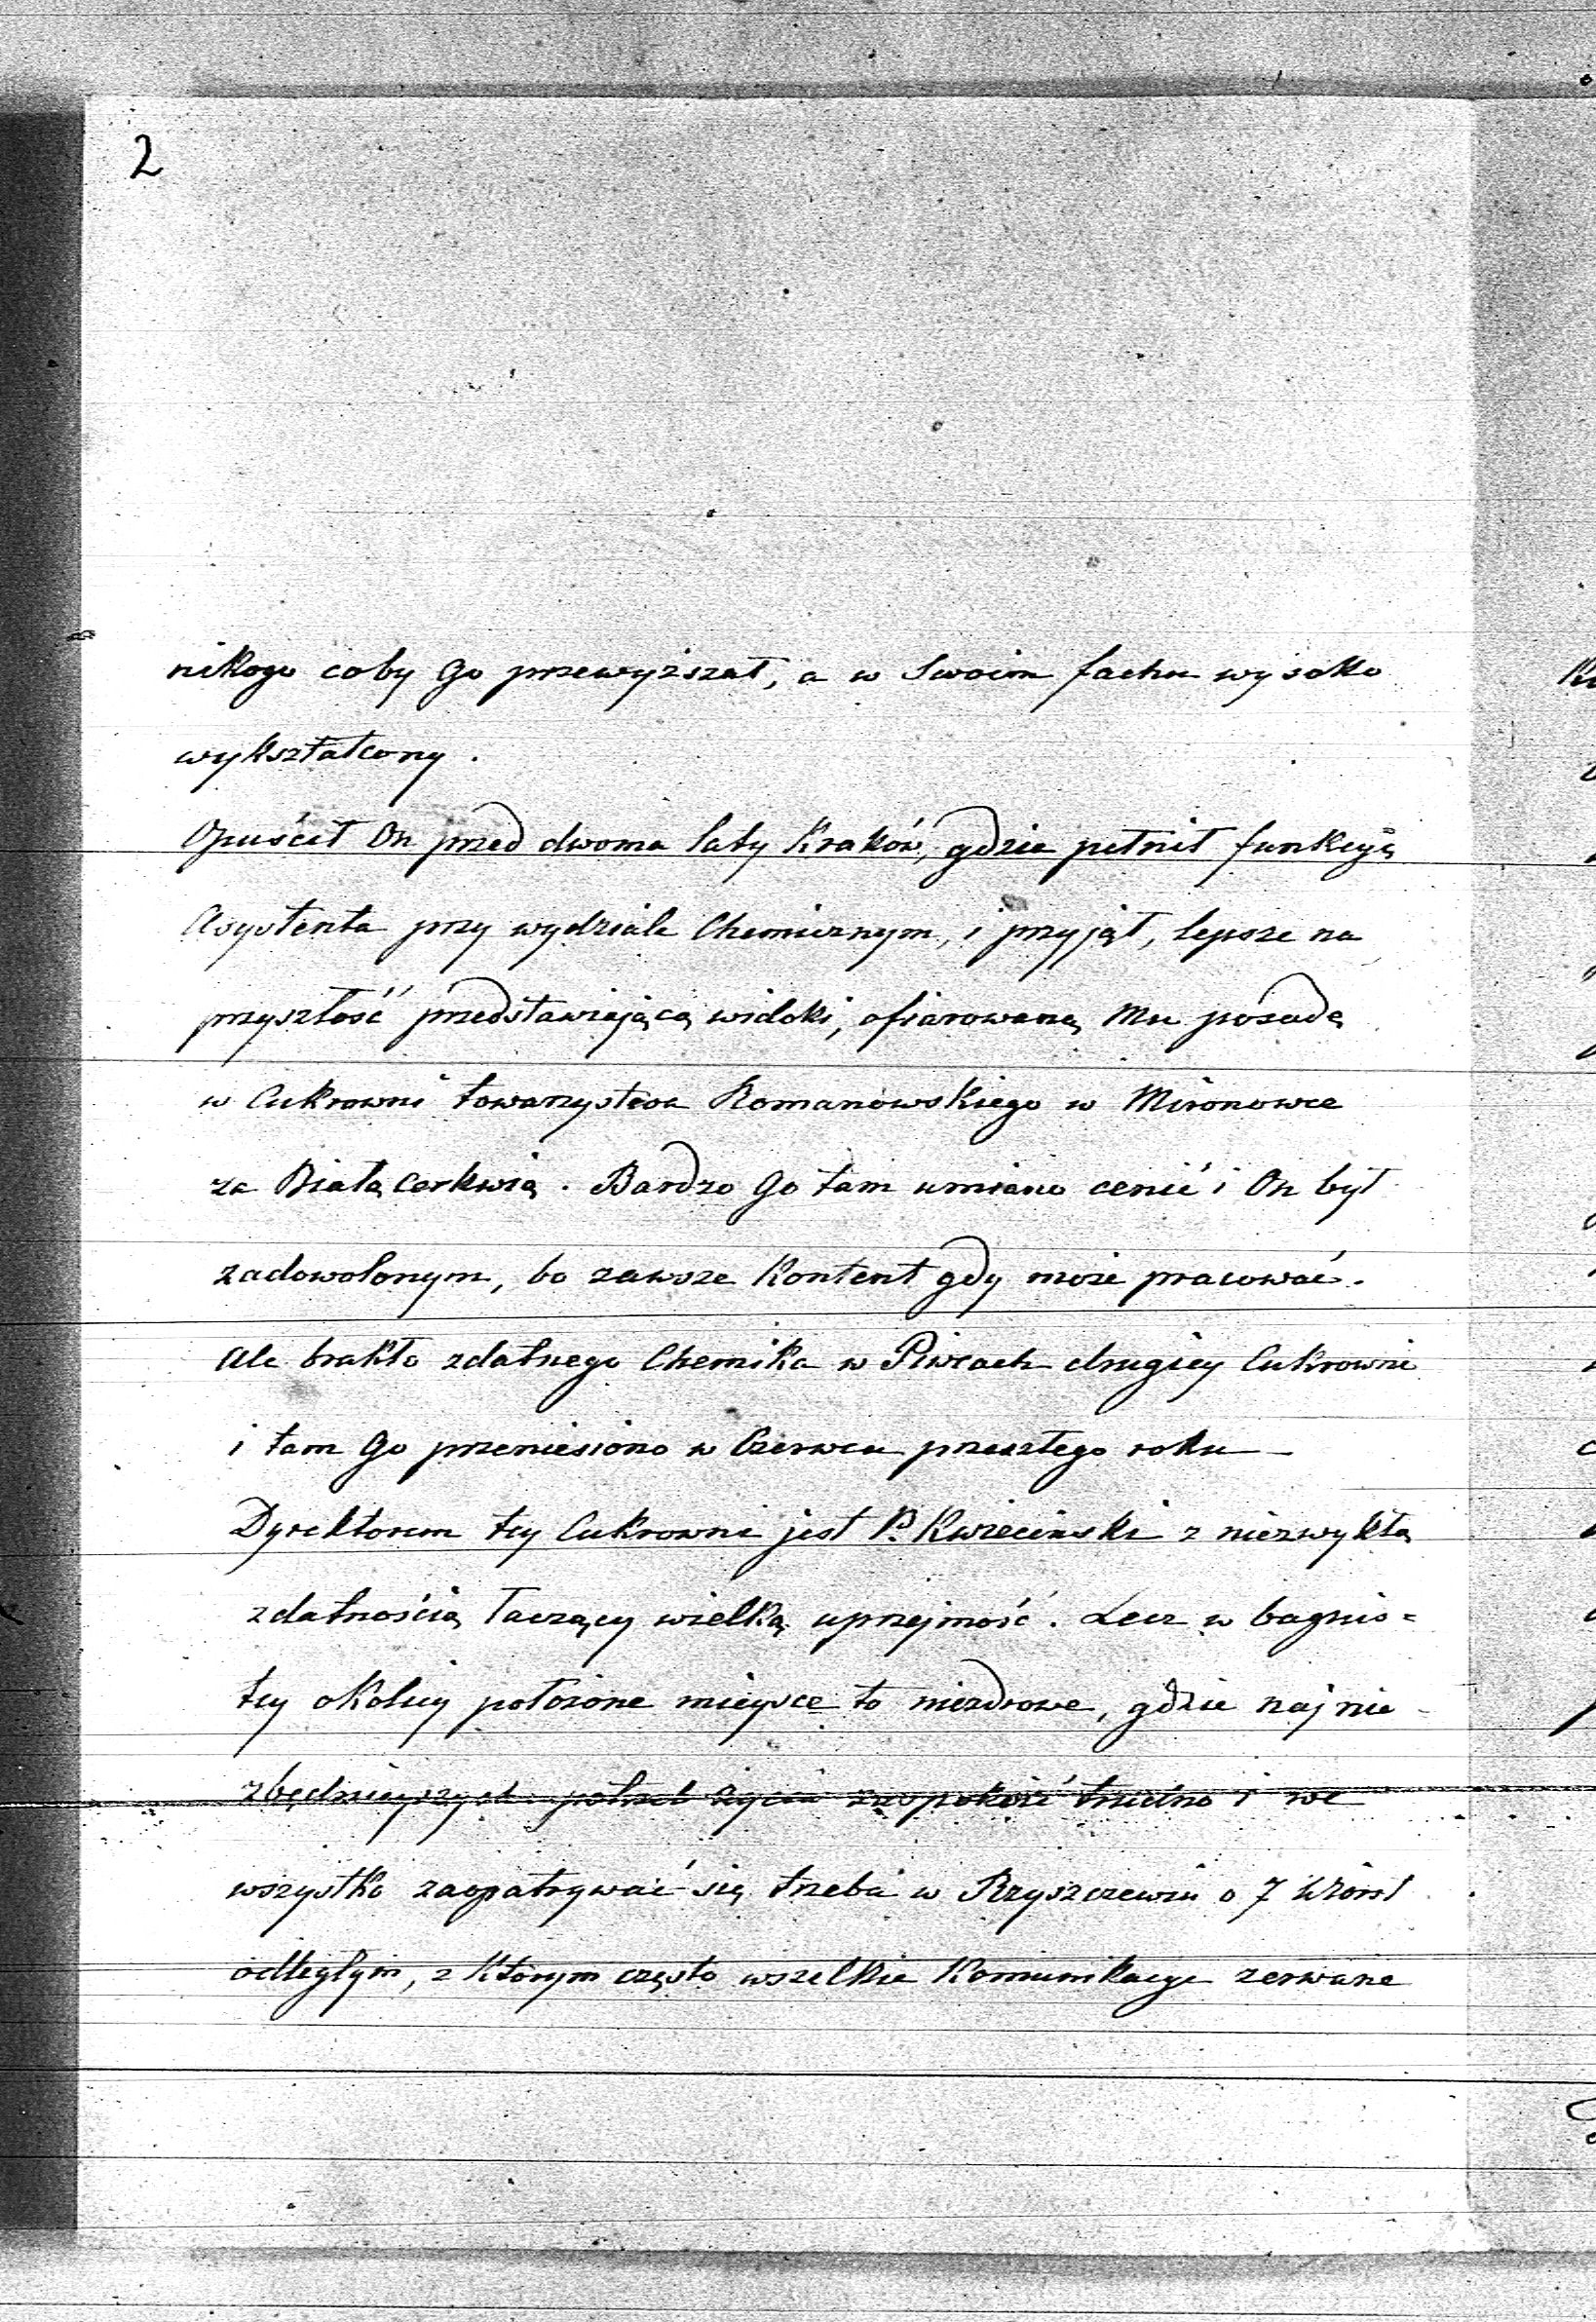 2
nikogo coby Go przewyższał, a w Swoim fachu wysoko
wykształcony.
Opuścił On przed dwoma laty Kraków, gdzie pełnił funkcyą
Asystenta przy wydziale Chemicznym, i przyjął, lepsze na
przyszłość przedstawiającą widoki, ofiarowaną Mu posadę
w Cukrowni towarzystwa Romanowskiego w Mironowce
za Białącerkwią. Bardzo Go tam umiano cenić i On był
zadowolonym, bo zawsze Kontent gdy może pracować.
Ale brakło zdatnego Chemika w Piwcach drugiey Cukrowni
i tam Go przeniesiono w Czerwcu przeszłego roku —
Dyrektorem tey Cukrowni jest P. Kwieciński z niezwykłą
zdatnością łaczący wielką uprzejmość. Lecz w bagnis=
tey okolicy położone mieysce to niezdrowe, gdzie najnie-
zbędnieyszych potrzeb życia zaspokoić trudno i we
wszystko zaopatrywać się trzeba w Rzyszczewiu o 7 Wiorst
odległym, z którym często wszelkie Komunikacye zerwane